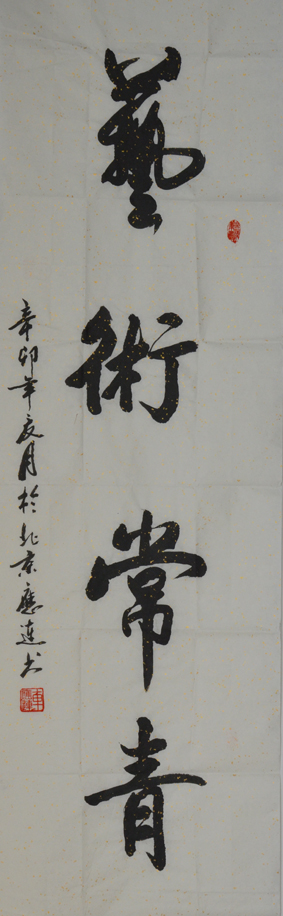 藝術常青
辛卯年夏月於北京應連書